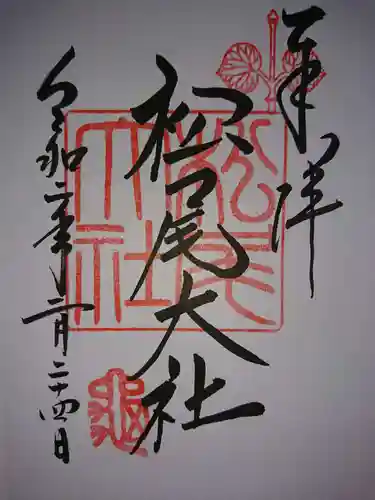 奉拝
松尾大社
令和二年二月二十四日
松尾
大社